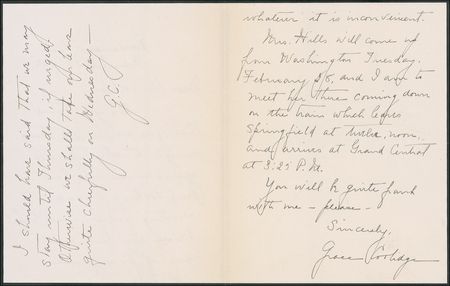 whatever it is inconvenient.
Mrs. Hills will come up
from Washington Tuesday,
February 28, and I am to
meet her there coming down
on the train which leaves
Springfield at twelve, noon,
and arrives at Grand Central
at 3.25 P.M.
You will be quite frank
with me - please -
Sincerely,
Grace Coolidge
I should have said that we may
stay until Thursday, if urged.
Otherwise we shall take off our
quite cheerfully on Wednesday -
G.C.